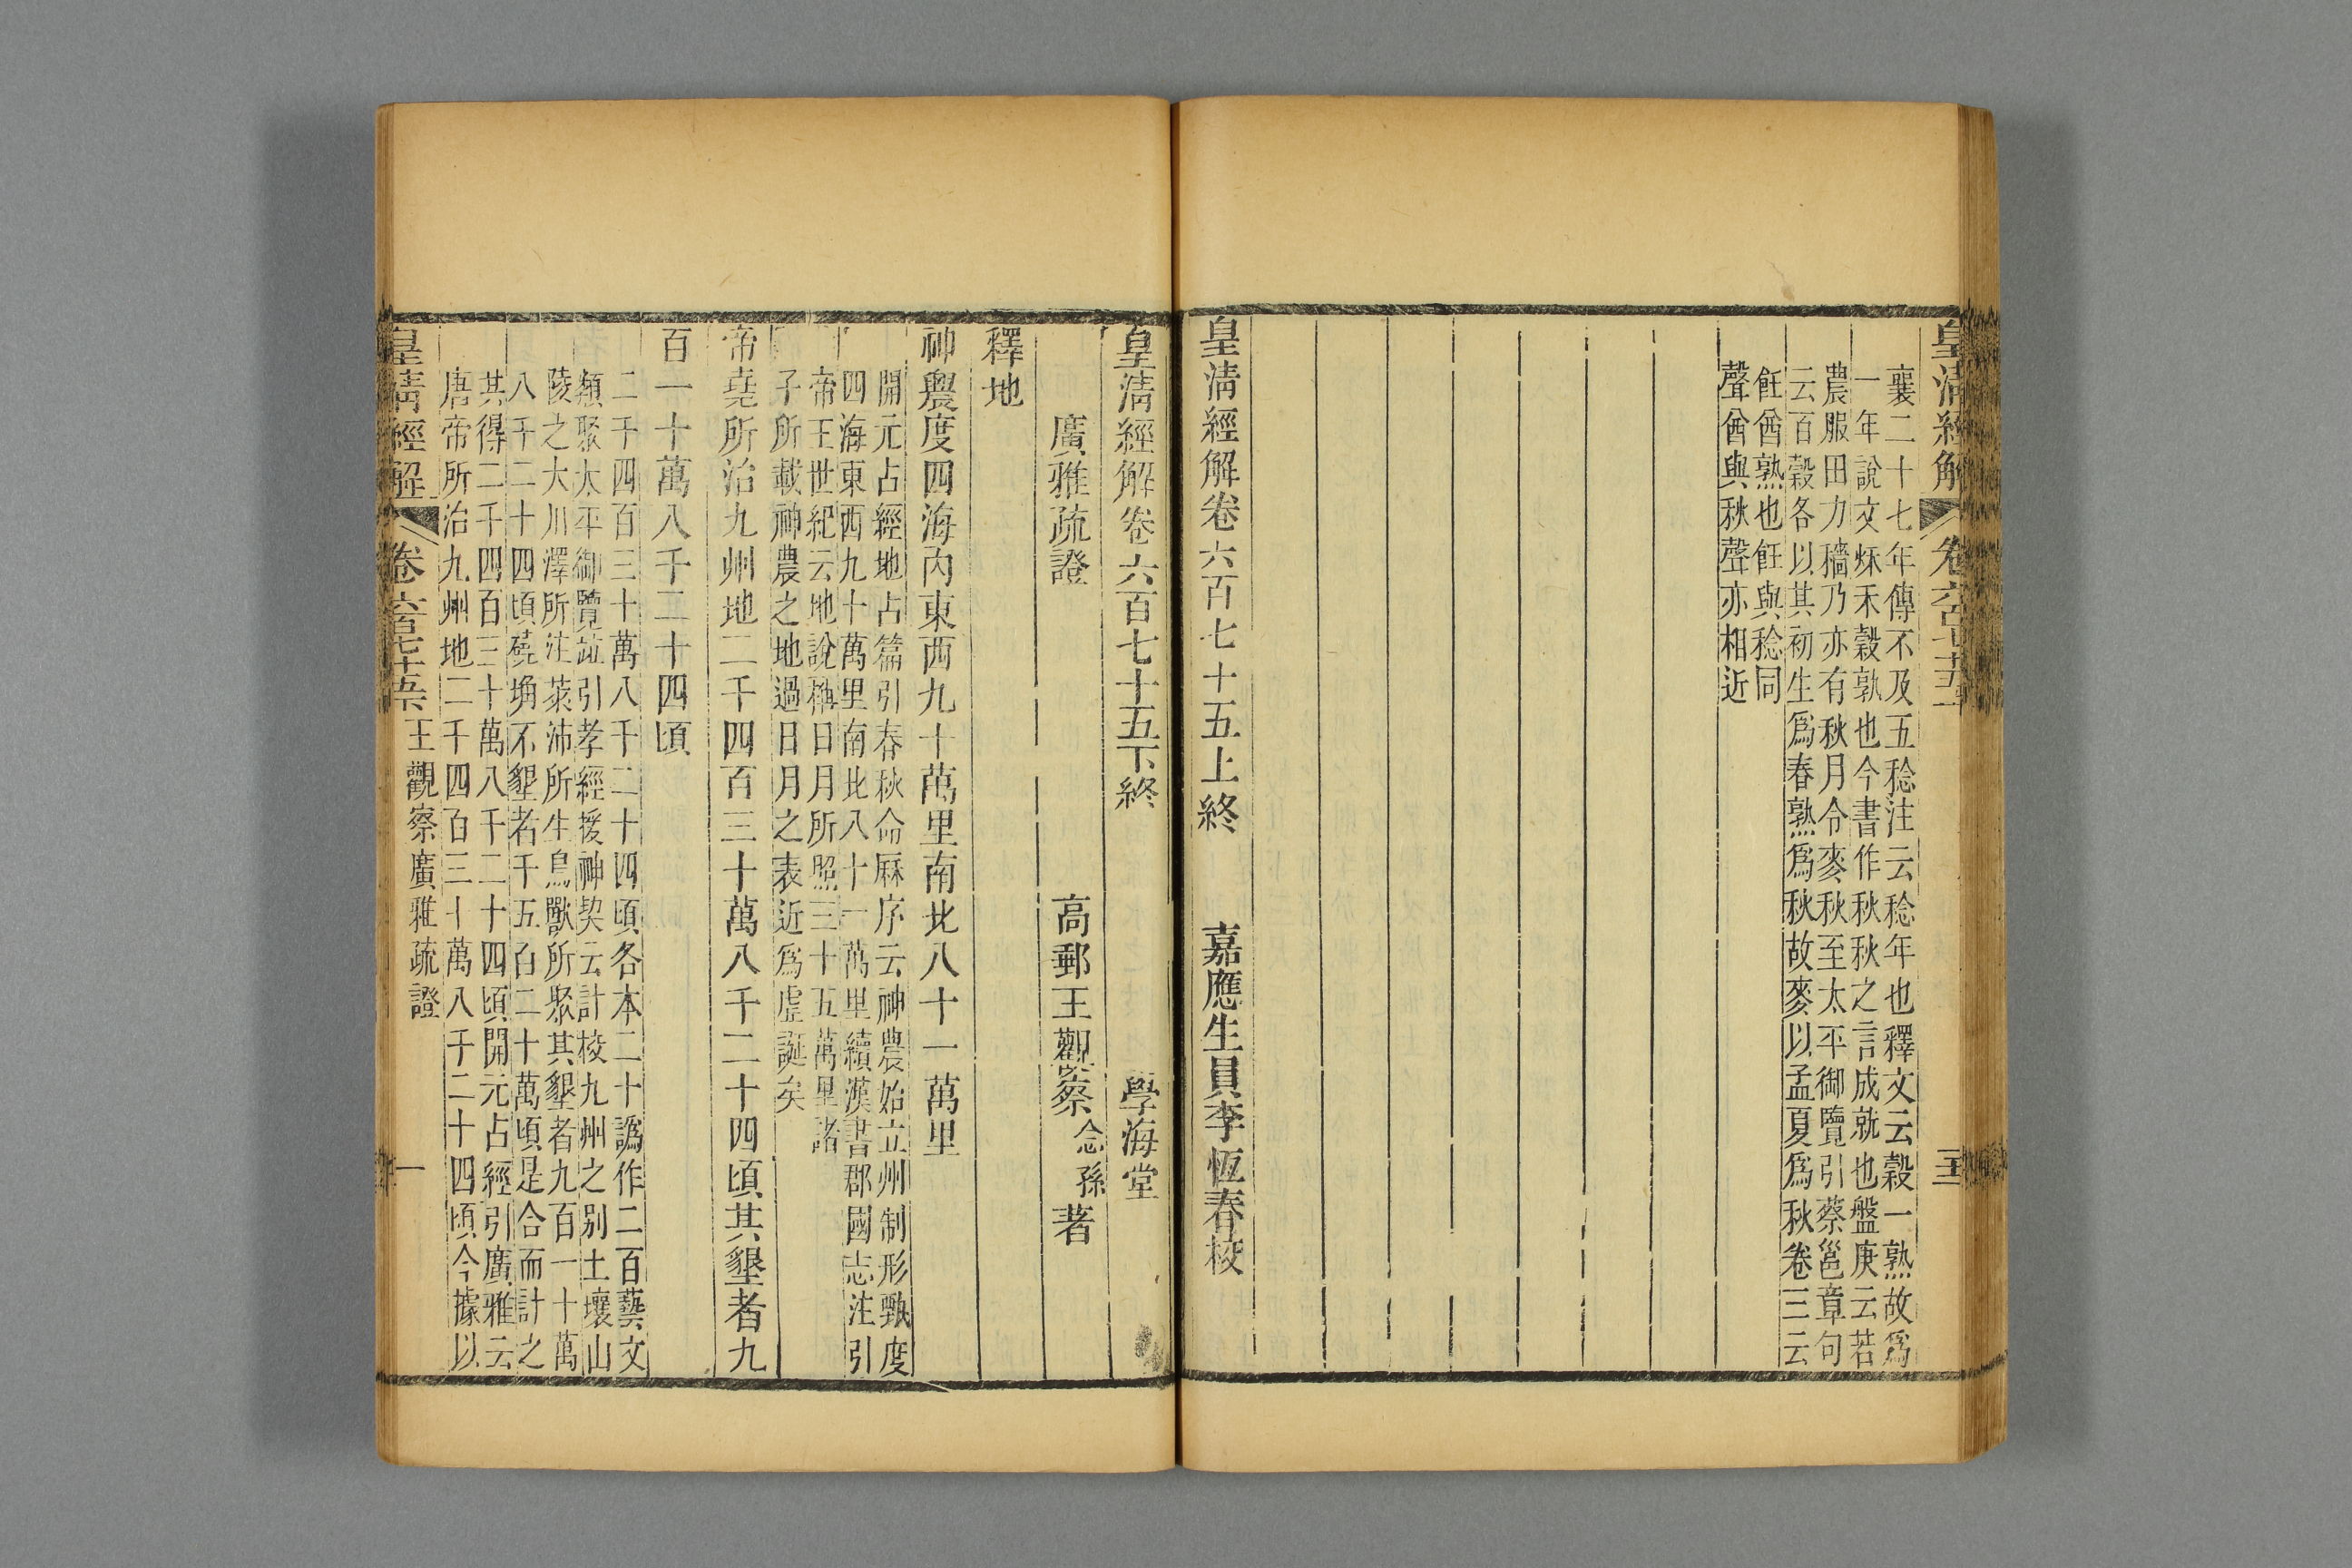 皇清經解 卷六百七十五上
襄二十七年傳不及五稔注云稔年也釋文云穀一熟故爲
一年說文秌禾穀孰也今書作秋秋之言成就也盤庚云若
農服田力穡乃亦有秋月令麥秋至太平御覽引蔡邕章句
云百穀各以其初生爲春熟爲秋故麥以孟夏爲秋卷三云
飪酋熟也飪與稔同
聲酋與秋聲亦相近
皇清經解卷六百七十五上終 嘉應生員李恆春校
皇清經解卷六百七十五下終 學海堂
廣雅疏證 高郵王觀察念孫著
釋地
神農度四海內東西九十萬里南北八十一萬里
開元占經地占篇引春秋命厤序云神農始立州制形甄度
四海東西九十萬里南北八十一萬里續漢書郡國志注引
帝王世紀云地說稱日月所照三十五萬里諸
子所載神農之地過日月之表近爲虛誕矣
帝堯所治九州地二千四百三十萬八千二十四頃其墾者九
百一十萬八千二十四頃
二千四百三十萬八千二十四頃各本二十譌作二百藝文
類聚太平御覽竝引孝經援神契云計校九州之別土壤山
陵之大川澤所注萊沛所生鳥獸所聚其墾者九百一十萬
八千二十四頃磽埆不墾者千五百二十萬頃是合而計之
其得二千四百三十萬八千二十四頃開元占經引廣雅云
唐帝所治九州地二千四百三十萬八千二十四頃今據以
皇清經解 卷六百七十五 王觀察廣雅疏證 一